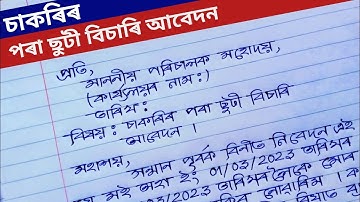 চাকৰিৰ
পৰা ছুটী বিচাৰি আবেদন
প্ৰতি,
মাননীয় পৰিচালক মহোদয়,
(কাৰ্য্যালয়ৰ নাম:)
তাৰিখ:
বিষয়: চাকৰিৰ পৰা ছুটী বিচাৰি
আবেদন।
মহাশয়,
সন্মান পূৰ্বক বিনীত নিবেদন এই
যে মই অহা ইং 01/03/2023 তাৰিখৰ
/03/2023 তাৰিখলৈকে মোৰ
নোৱাৰিম।